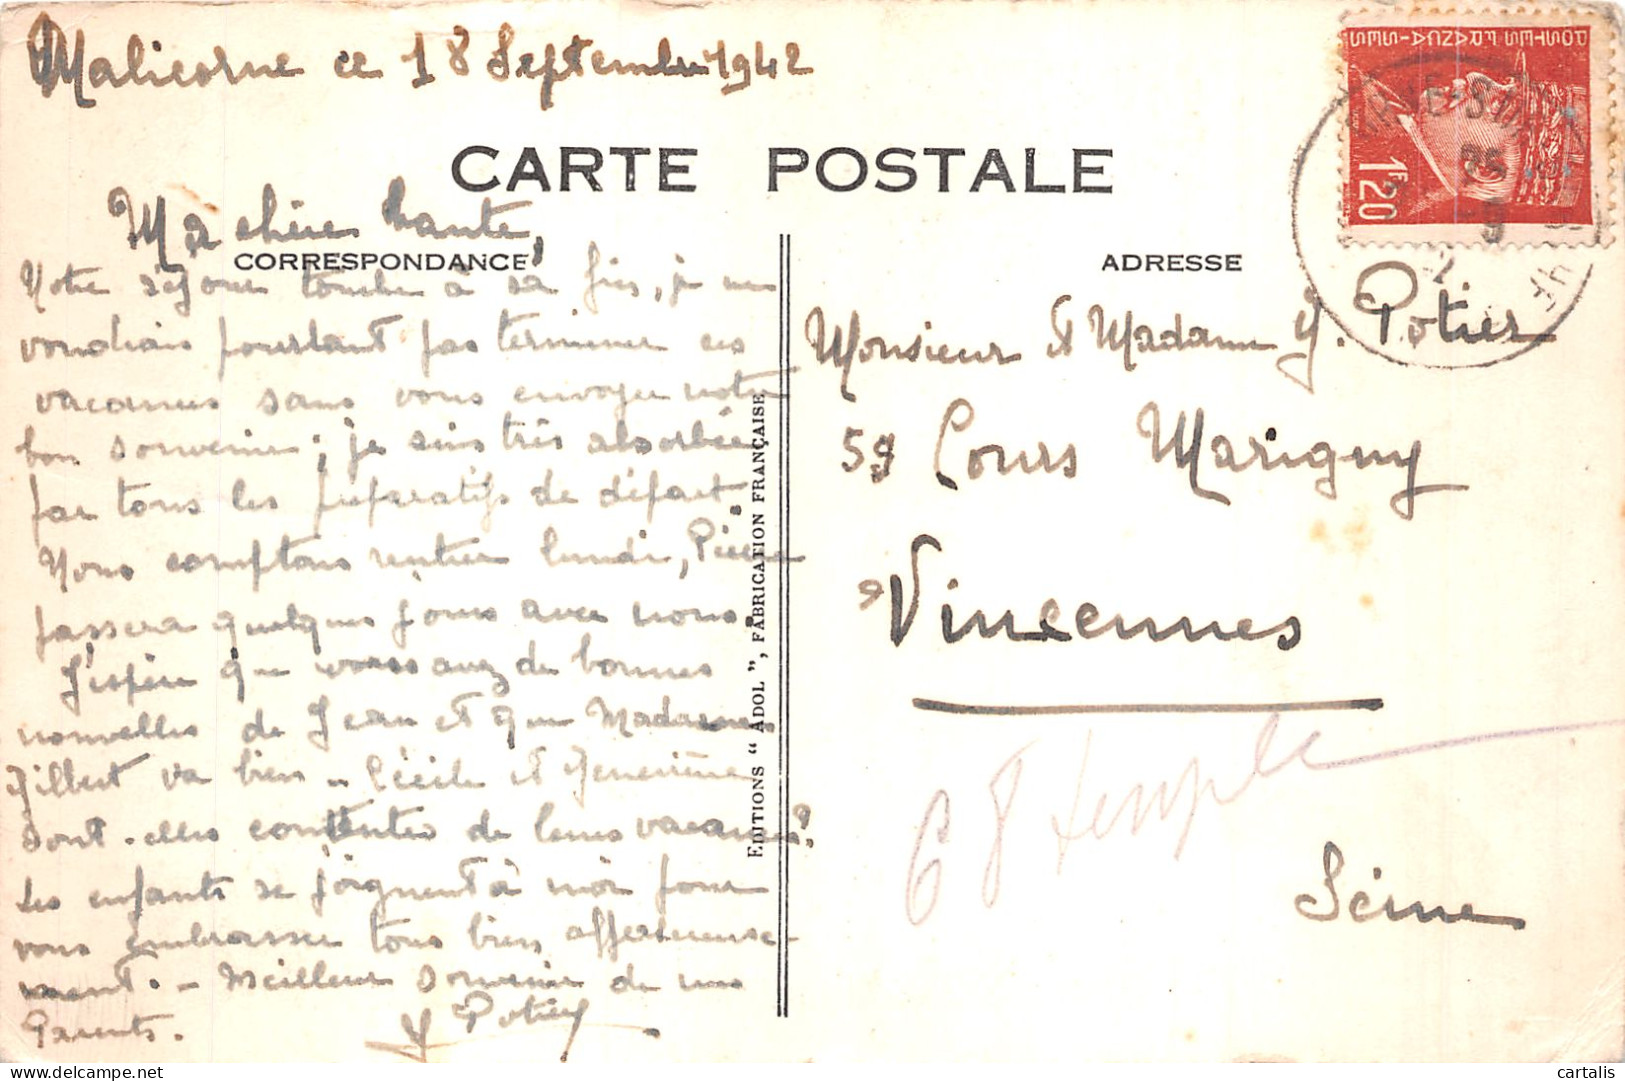 Malicorne ce 18 Septembre 1942
CARTE POSTALE
Ma chère tante,
CORRESPONDANCE
Notre séjour touche à sa fin, je ne
voudrais pourtant pas terminer ces
vacances sans vous envoyer notre
bon souvenir ; je suis très absorbée
par tous les préparatifs de départ
Nous comptons rentrer lundi, Pierre
passera quelques jours avec nous.
J'espère que vous avez de bonnes
nouvelles de Jean et que Madame
Gilbert va bien - Cécile et Geneviève
sont-elles contentes de leurs vacances ?
Les enfants se joignent à moi pour
vous embrasser tous bien affectueuse-
ment. - Meilleur souvenir de mes
Parents.
Y Potier
EDITIONS "ADOL", FABRICATION FRANÇAISE
POSTES FRANÇAISES
1F20
25
-9
ADRESSE
Monsieur et Madame G. Potier
59 Cours Marigny
Vincennes
68 temple
Seine
cartalis